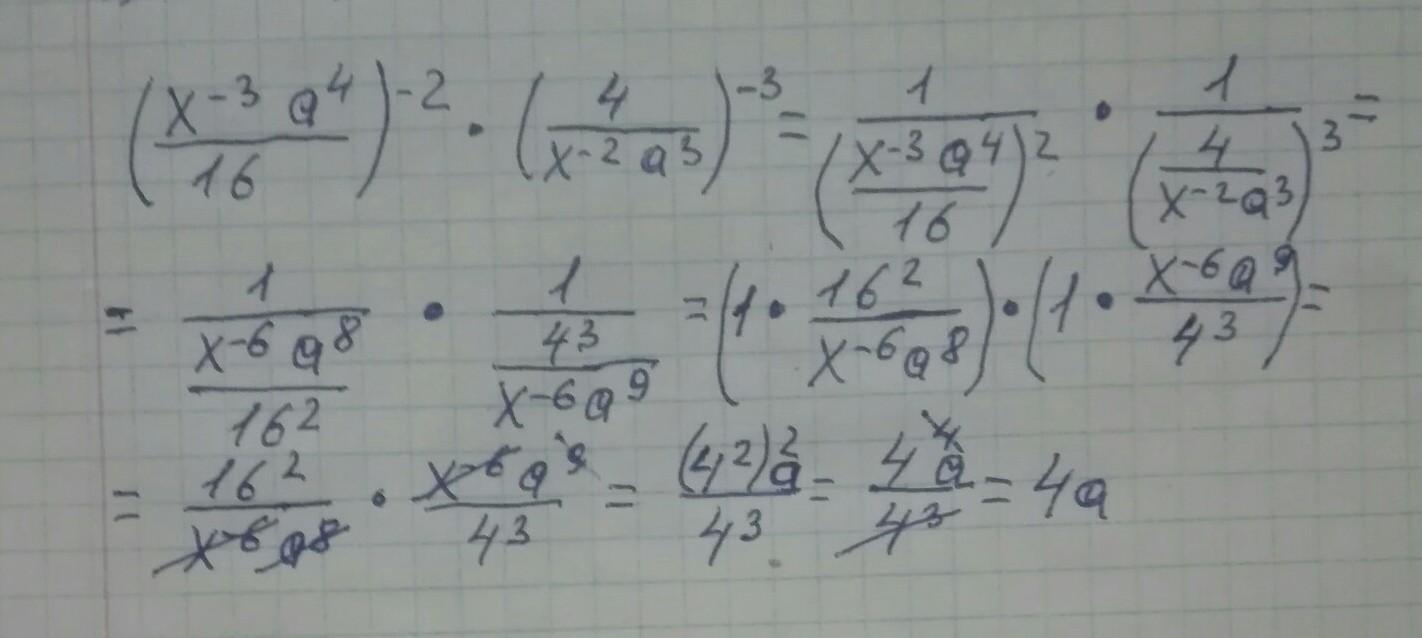 (x⁻³a⁴/16)⁻² · (4/x⁻²a³)⁻³ = 1/(x⁻³a⁴/16)² · 1/(4/x⁻²a³)³ =
= 1/(x⁻⁶a⁸/16²) · 1/(4³/x⁻⁶a⁹) = (1 · 16²/x⁻⁶a⁸) · (1 · x⁻⁶a⁹/4³) =
= 16²/x⁻⁶a⁸ · x⁻⁶a⁹/4³ = (4²)²a/4³ = 4⁴a/4³ = 4a